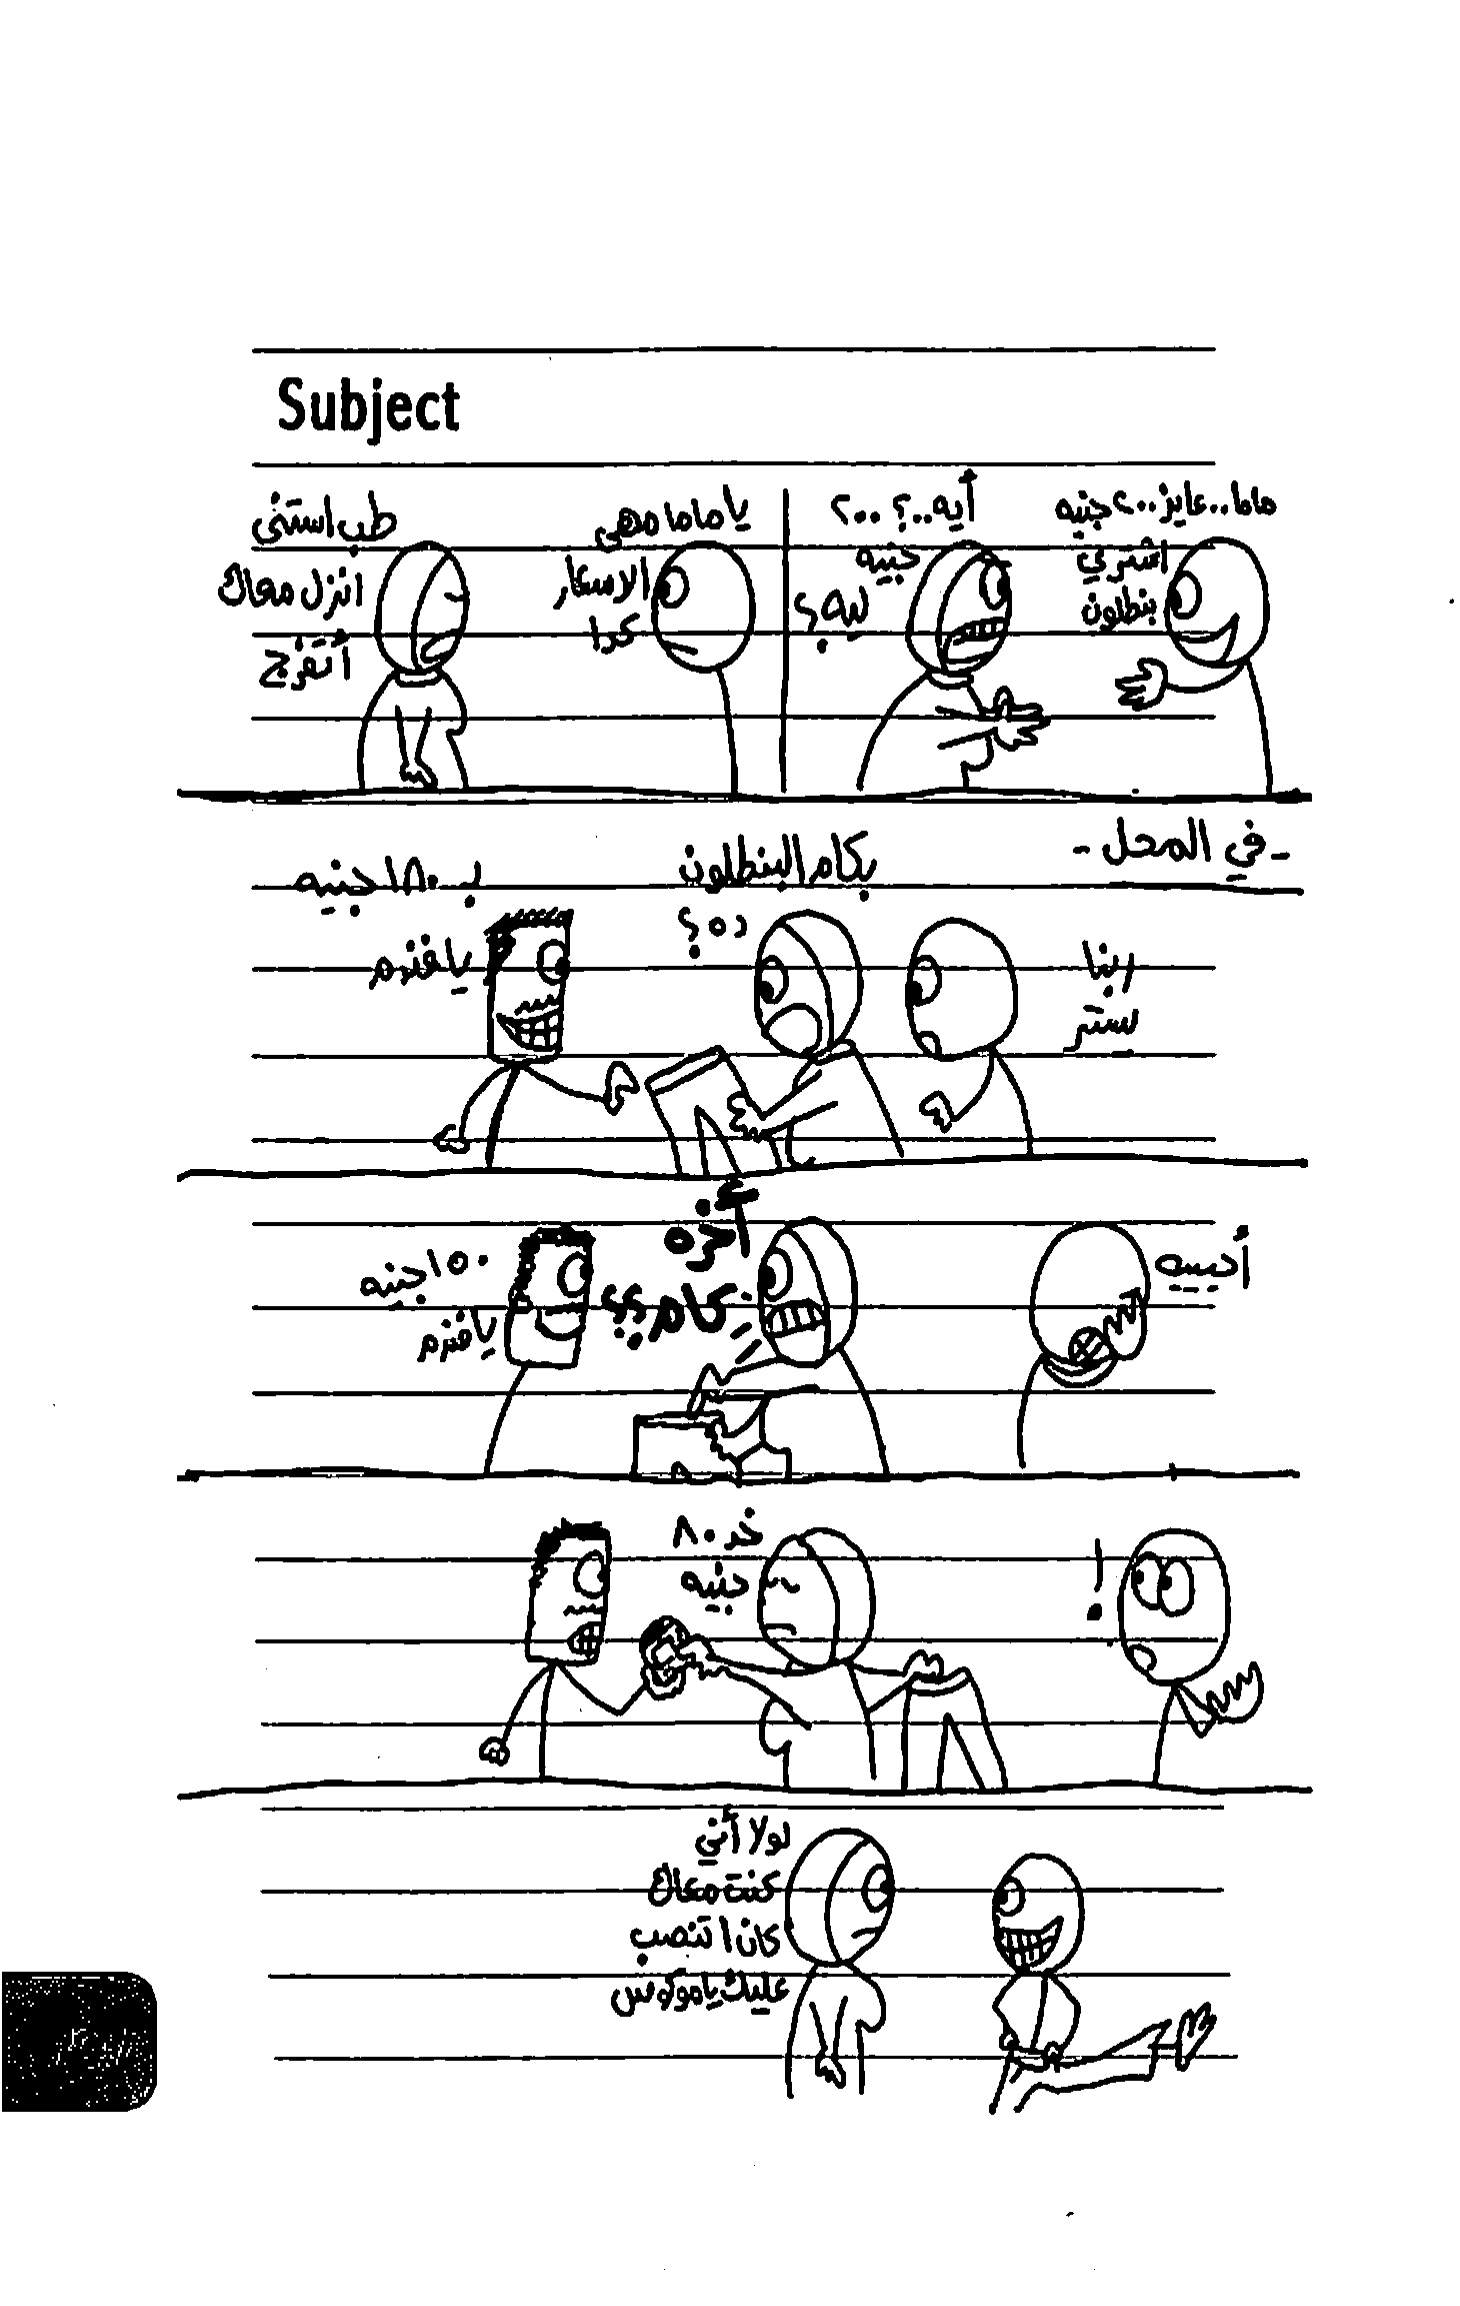 Subject
ماما..عايز ٢٠٠ جنيه
اشتري
بنطلون
أيه..؟ ٢٠٠
جنيه
ليه؟
يا ماما مهى
الاسعار
كدا
طب استنى
انزل معاك
أتفرج
- في المحل -
ربنا
يستر
بكام البنطلون
ده؟
بـ ١٨٠ جنيه
يا فندم
أحييه
أخره
كام؟؟
١٥٠ جنيه
يا فندم
!
خد ٨٠
جنيه
لولا أني
كنت معاك
كان اتنصب
عليك يا موكوس